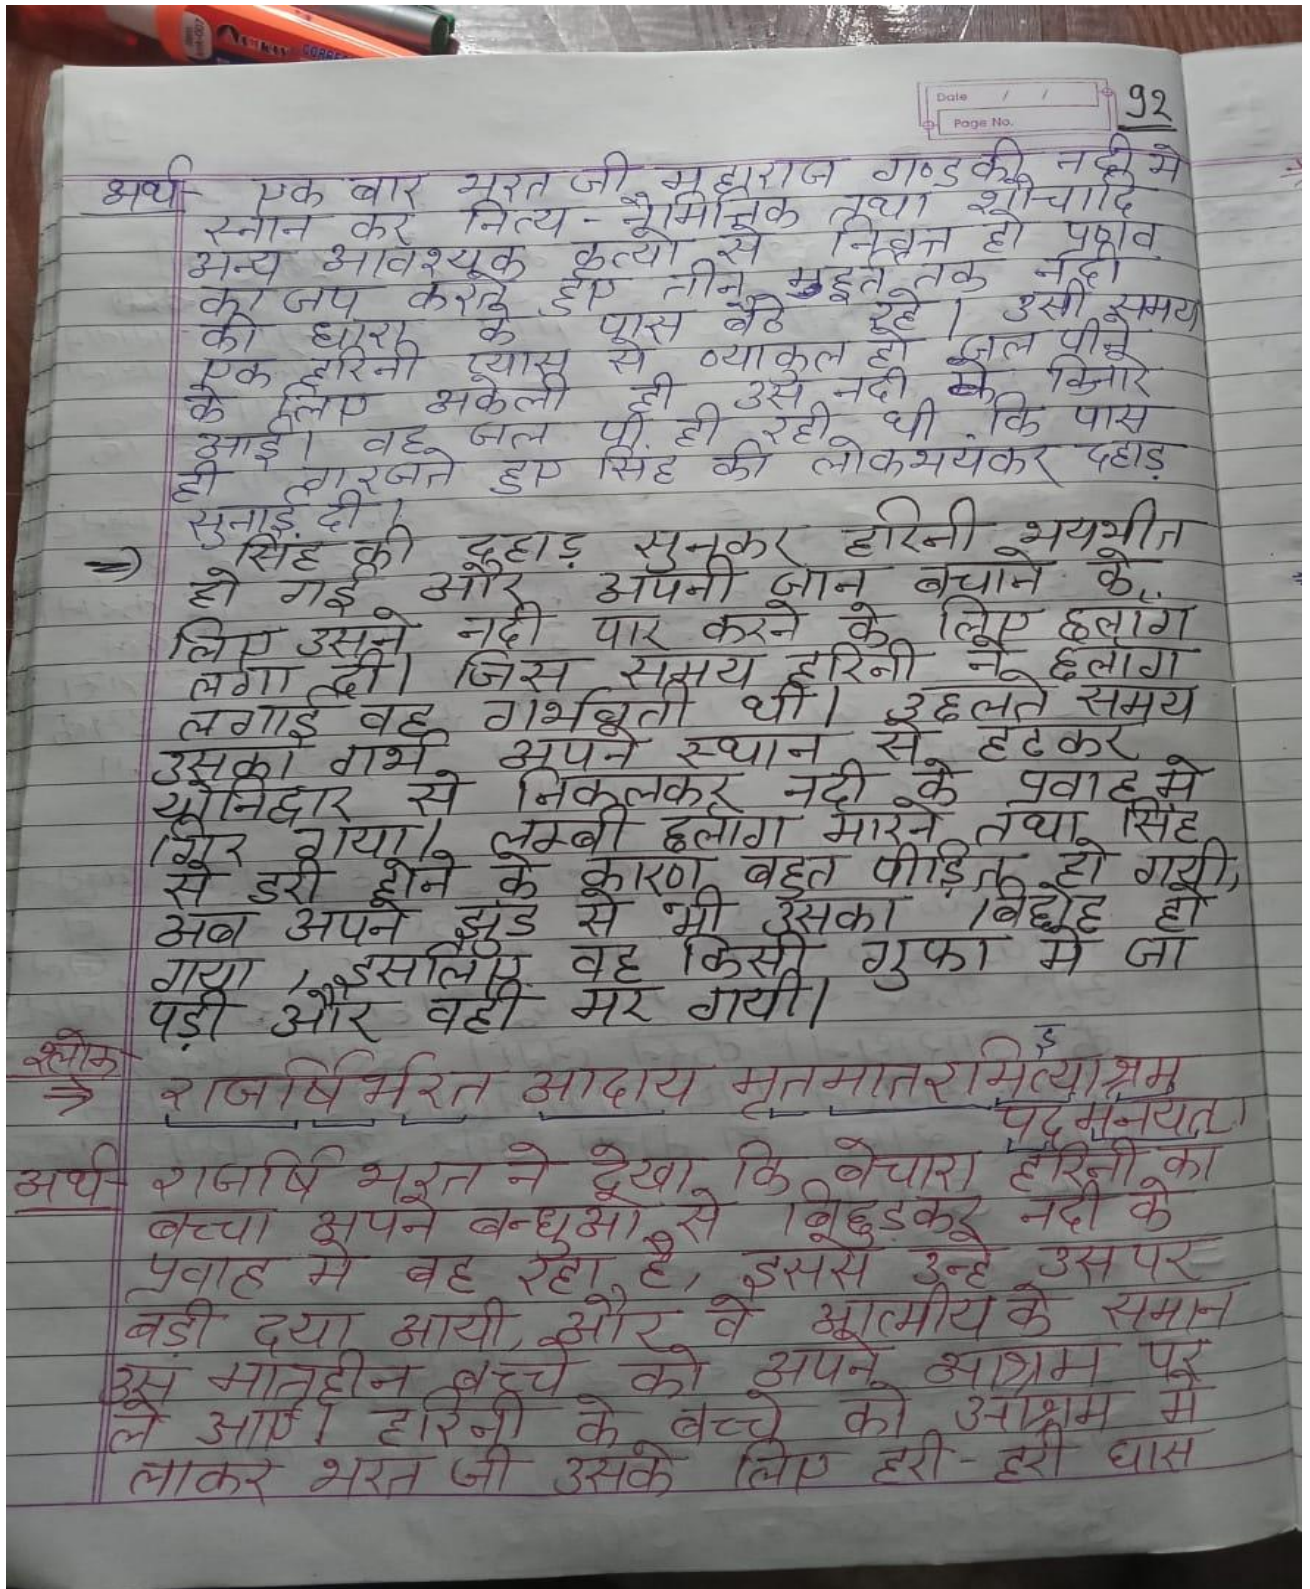 Date / /
Page No.
92
अर्थ- एक बार भरत जी महाराज गण्डकी नदी मे
स्नान कर नित्य-नैमित्तिक तथा शौचादि
अन्य आवश्यक कृत्यो से निवृत्त हो प्रणव
का जप करते हुए तीन मुहूत तक नदी
की धारा के पास बैठे रहे। उसी समय
एक हरिनी प्यास से व्याकुल हो जल पीने
के लिए अकेली ही उस नदी के किनारे
आई। वह जल पी ही रही थी कि पास
ही गरजते हुए सिंह की लोकभयंकर दहाड़
सुनाई दी।
⇒ सिंह की दहाड़ सुनकर हरिनी भयभीत
हो गई और अपनी जान बचाने के
लिए उसने नदी पार करने के लिए छलाँग
लगा दी। जिस समय हरिनी ने छलाँग
लगाई वह गर्भवती थी। उछलते समय
उसका गर्भ अपने स्थान से हटकर
योनिद्वार से निकलकर नदी के प्रवाह मे
गिर गया। लम्बी छलाँग मारने तथा सिंह
से डरी होने के कारण बहुत पीड़ित हो गयी,
अब अपने झुंड से भी उसका बिछोह हो
गया, इसलिए वह किसी गुफा मे जा
पड़ी और वही मर गयी।
श्लोक
इ
⇒ राजर्षिर्भरत आदाय मृतमातरमित्याश्रम
पदमनयत।
अर्थ- राजर्षि भरत ने देखा कि बेचारा हरिनी का
बच्चा अपने बन्धुओ से बिछुड़कर नदी के
प्रवाह मे बह रहा है, इससे उन्हे उस पर
बड़ी दया आयी, और वे आत्मीय के समान
उस मातृहीन बच्चे को अपने आश्रम पर
ले आए। हरिनी के बच्चे को आश्रम मे
लाकर भरत जी उसके लिए हरी-हरी घास